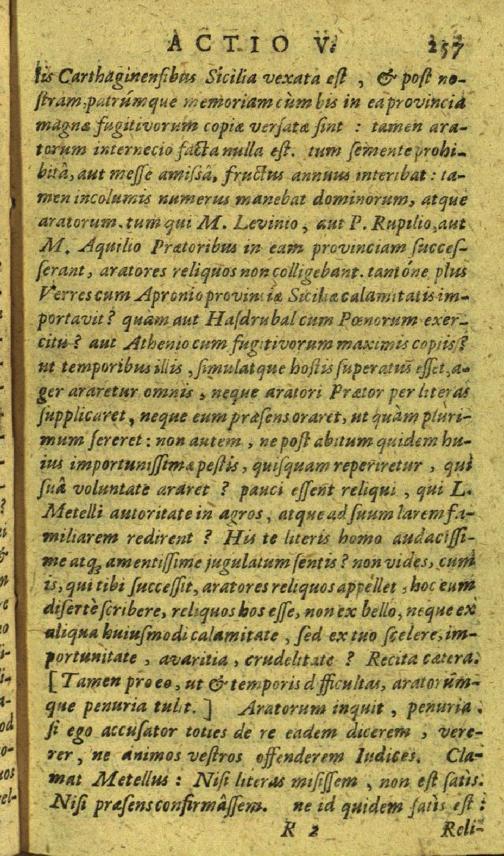 ACTIO V. 257
lis Carthaginensibus Sicilia vexata est, & post no-
stram, patrúmque memoriam cùm bis in ea provincia
magnæ fugitivorum copiæ versatæ sint : tamen ara-
torum internecio facta nulla est. tum semente prohi-
bitâ, aut messe amissâ, fructus annuus interibat : ta-
men incolumis numerus manebat dominorum, atque
aratorum. tum qui M. Levinio, aut P. Rupilio, aut
M. Aquilio Prætoribus in eam provinciam succes-
serant, aratores reliquos non colligebant. tantóne plus
Verres cum Apronio provinciæ Siciliæ calamitatis im-
portavit ? quàm aut Hasdrubal cum Pœnorum exer-
citu ? aut Athenio cum fugitivorum maximis copiis ?
ut temporibus illis, simulatque hostis superatus esset, a-
ger araretur omnis, neque aratori Prætor per literas
supplicaret, neque eum præsens oraret, ut quàm pluri-
mum sereret : non autem, ne post abitum quidem hu-
ius importunissimæ pestis, quisquam reperiretur, qui
suâ voluntate araret ? pauci essent reliqui, qui L.
Metelli autoritate in agros, atque ad suum larem fa-
miliarem redirent ? His te literis homo audacissi-
me atq; amentissime jugulatum sentis ? non vides, cum
is, qui tibi successit, aratores reliquos appellet, hoc eum
disertè scribere, reliquos hos esse, non ex bello, neque ex
aliqua huiusmodi calamitate, sed ex tuo scelere, im-
portunitate, avaritia, crudelitate ? Recita cætera.
[Tamen pro eo, ut & temporis difficultas, aratorúm-
que penuria tulit.] Aratorum inquit, penuria.
si ego accusator toties de re eadem dicerem, vere-
rer, ne animos vestros offenderem Iudices. Cla-
mat Metellus : Nisi literas misissem, non est satis.
Nisi præsens confirmâssem. ne id quidem satis est :
R 2 Reli-